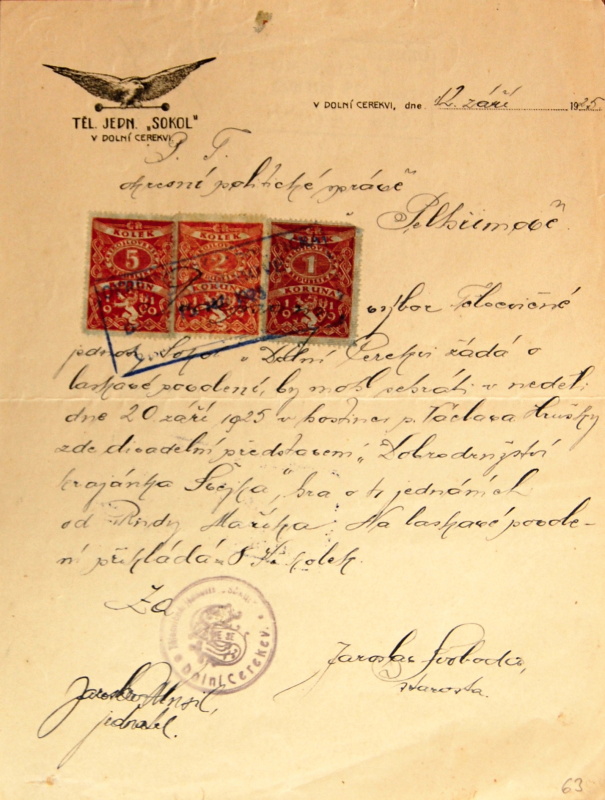 V DOLNÍ CEREKVI, dne 12. září 1925.
TĚL. JEDN. „SOKOL"
V DOLNÍ CEREKVI
P. T.
okresní politické správě
Pelhřimově.
KOLEK KOLEK KOLEK
5 2 1
KORUNA
výbor Tělocvičné
jednoty Sokol v Dolní Cerekvi žádá o
laskavé povolení, by mohl sehráti v neděli
dne 20 září 1925 v hostinci p. Václava Hrušky
zde divadelní představení „Dobrodružství
krajánka Švejka", hra o 4 jednáních
od Rudy Maříka. Na laskavé povole-
ní přikládá 8 Kč kolek.
Za
Dolní Cerekvi.
Jaroslav Svoboda,
starosta.
Jaroslav
jednatel.
63